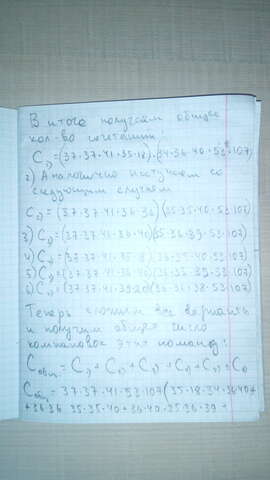 В итоге получаем общее
кол-во сочетаний:
C₁=(37·37·41·35·18)·(34·36·40·53·107)
2) Аналогично поступаем со
следующим случаем
C₂=(37·37·41·36·36)(35·35·40·53·107)
3) C₃=(37·37·41·36·40)(35·36·39·53·107)
4) C₄=(37·37·41·35·8)(36·35·40·53·107)
5) C₅=(37·37·41·36·20)(36·35·39·53·107)
6) C₆=(37·37·41·39·20)(36·36·38·53·107)
Теперь сложим все варианты
и получим общее число
компановок этих команд:
Cобщ = C₁ + C₂ + C₃ + C₄ + C₅ + C₆
Cобщ = 37·37·41·53·107(35·18·34·36·40+
+36·36·35·35·40+36·40·35·36·39+